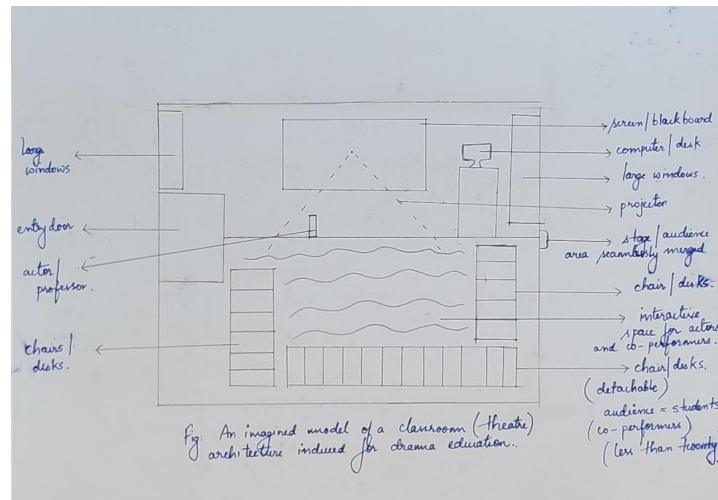 large
windows
entry door
actor/
professor.
chairs/
desks.
screen/blackboard
computer/desk
large windows.
projector
stage/audience
area seamlessly merged
chair/desks.
interactive
space for actors
and co-performers.
chair/desks.
(detachable)
audience = students
(co-performers)
(less than twenty
Fig: An imagined model of a classroom (theatre)
architecture induced for drama education..